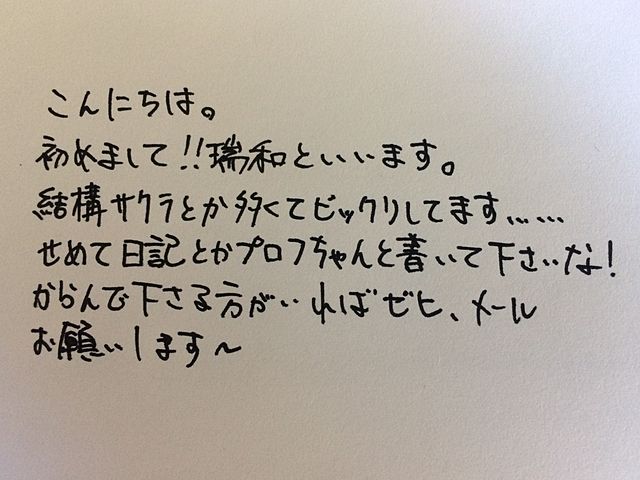 こんにちは。
初めまして!!瑞和といいます。
結構サクラとか多くてビックリしてます……
せめて日記とかプロフちゃんと書いて下さいな!
からんで下さる方がいればゼヒ、メール
お願いします~